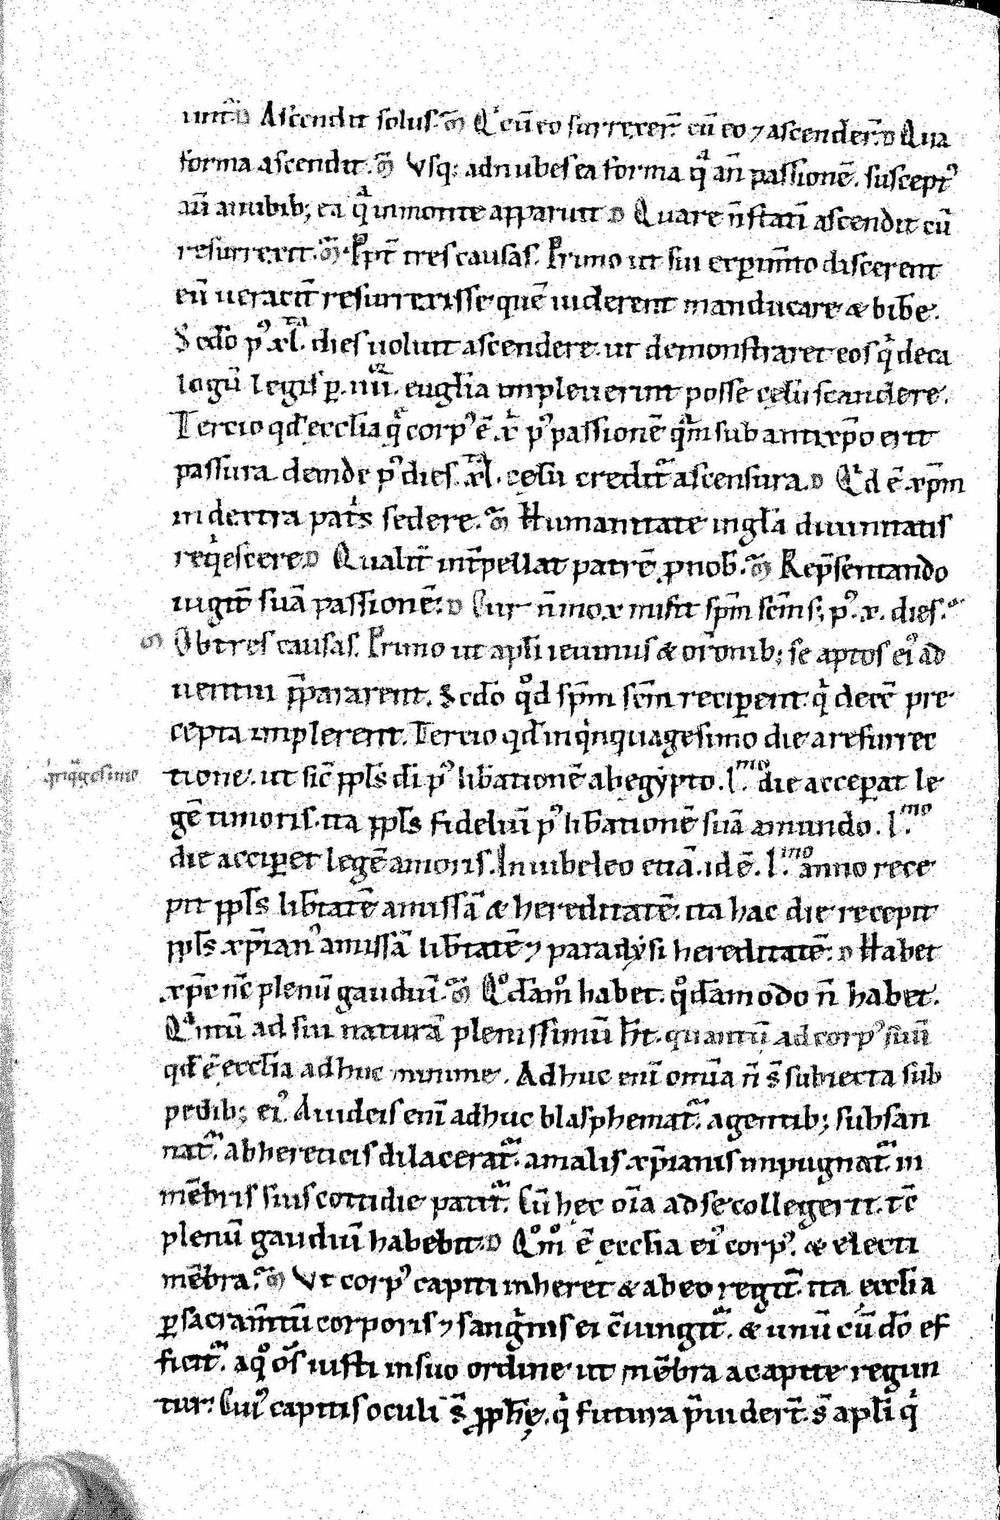 unt. D Ascendit solus. M Qͥ cū eo surrexer̄ cū eo ⁊ ascender̄. D Qua
forma ascendit. M Vsq; ad nubes ea forma qͣ an̄ passionē. suscept᷒
aū a nubib; ea qͣ in monte apparuit D Quare n̄ statī ascendit cū
resurrexit. M Ꝓpt̄ tres causas. Primo ut sui exꝑim̄to discerent
eū ueracit̄ resurrexisse quē uiderent manducare & bibe.
Scdo p᷒ .xl. dies uoluit ascendere. ut demonstraret eos qͥ deca
logū legis ꝑ .iiii. euglia impleuerint posse celū scandere.
Tercio qd ecclia qͣ corp᷒ ē xp̄i p᷒ passionē qͣm sub antixp̄o erit
passura deinde p᷒ dies .xl. celū credit᷑ ascensura. D Qͥd ē xp̄m
in dextra patͥs sedere. M Humanitate in gl̄a diuinitatis
reqͥescere. D Qualit̄ int̄pellat patrē ꝓ nob̄. M Rep̄sentando
iugit̄ suā passionē. D Cur n̄ mox misit sp̄m scm̄ s; p᷒ .x. dies.
M Ob tres causas. Primo ut apl̄i ieiuniis & or̄onib; se aptos ei᷒ ad
uentui p̄pararent. Scdo qͦd sp̄m scm̄ reciꝑent qͥ decē pre
cepta implerent. Tercio qd in qͥnquagesimo die a resurrec
qͥnqͣgesimo
tione. ut sic̄ ppl̄s di p᷒ lib̄ationē ab egypto .l.ᵐᵒ die acceꝑat le
gē timoris. ita ppl̄s fideliū p᷒ lib̄ationē suā a mundo .l.ᵐᵒ
die acciꝑet legē amoris. In iubeleo etiā. id ē .l.ᵐᵒ anno rece
pit ppl̄s lib̄tatē amissā & hereditatē. ita hac die recepit
ppl̄s xp̄ian᷒ amissā lib̄tatē ⁊ paradysi hereditatē. D Habet
xp̄c n̄c plenū gaudiū. M Qͦdāmͦ habet. qͦdāmodo n̄ habet.
Qͣntū ad sui naturā plenissimū h̄t. quantū ad corp᷒ suū
qd ē ecclia adhuc minime. Adhuc enī om̄ia n̄ s̄ subiecta sub
pedib; ei᷒. A iudeis enī adhuc blasphemat᷑. a gentib; subsan
nat᷑. ab hereticis dilacerat᷑. a malis xp̄ianis inpugnat᷑. in
mēbris suis cottidie patit᷑. Cū hec oīa ad se collegerit. tc̄
plenū gaudiū habebit. D Qͦm̊ ē ecclia ei᷒ corp᷒. & electi
mēbra. M Vt corp᷒ capiti inheret & ab eo regit᷑. ita ecclia
ꝑ sacramn̄tū corporis ⁊ sangͥnis ei ꝯiungit᷑. & unū cū do ef
ficit᷑. a qͦ oēs iusti in suo ordine ut mēbra a capite regun
tur. Cui᷒ capitis oculi s̄ pph̄ę. qͥ futura p̄uider̄t. s̄ apl̄i qͥ